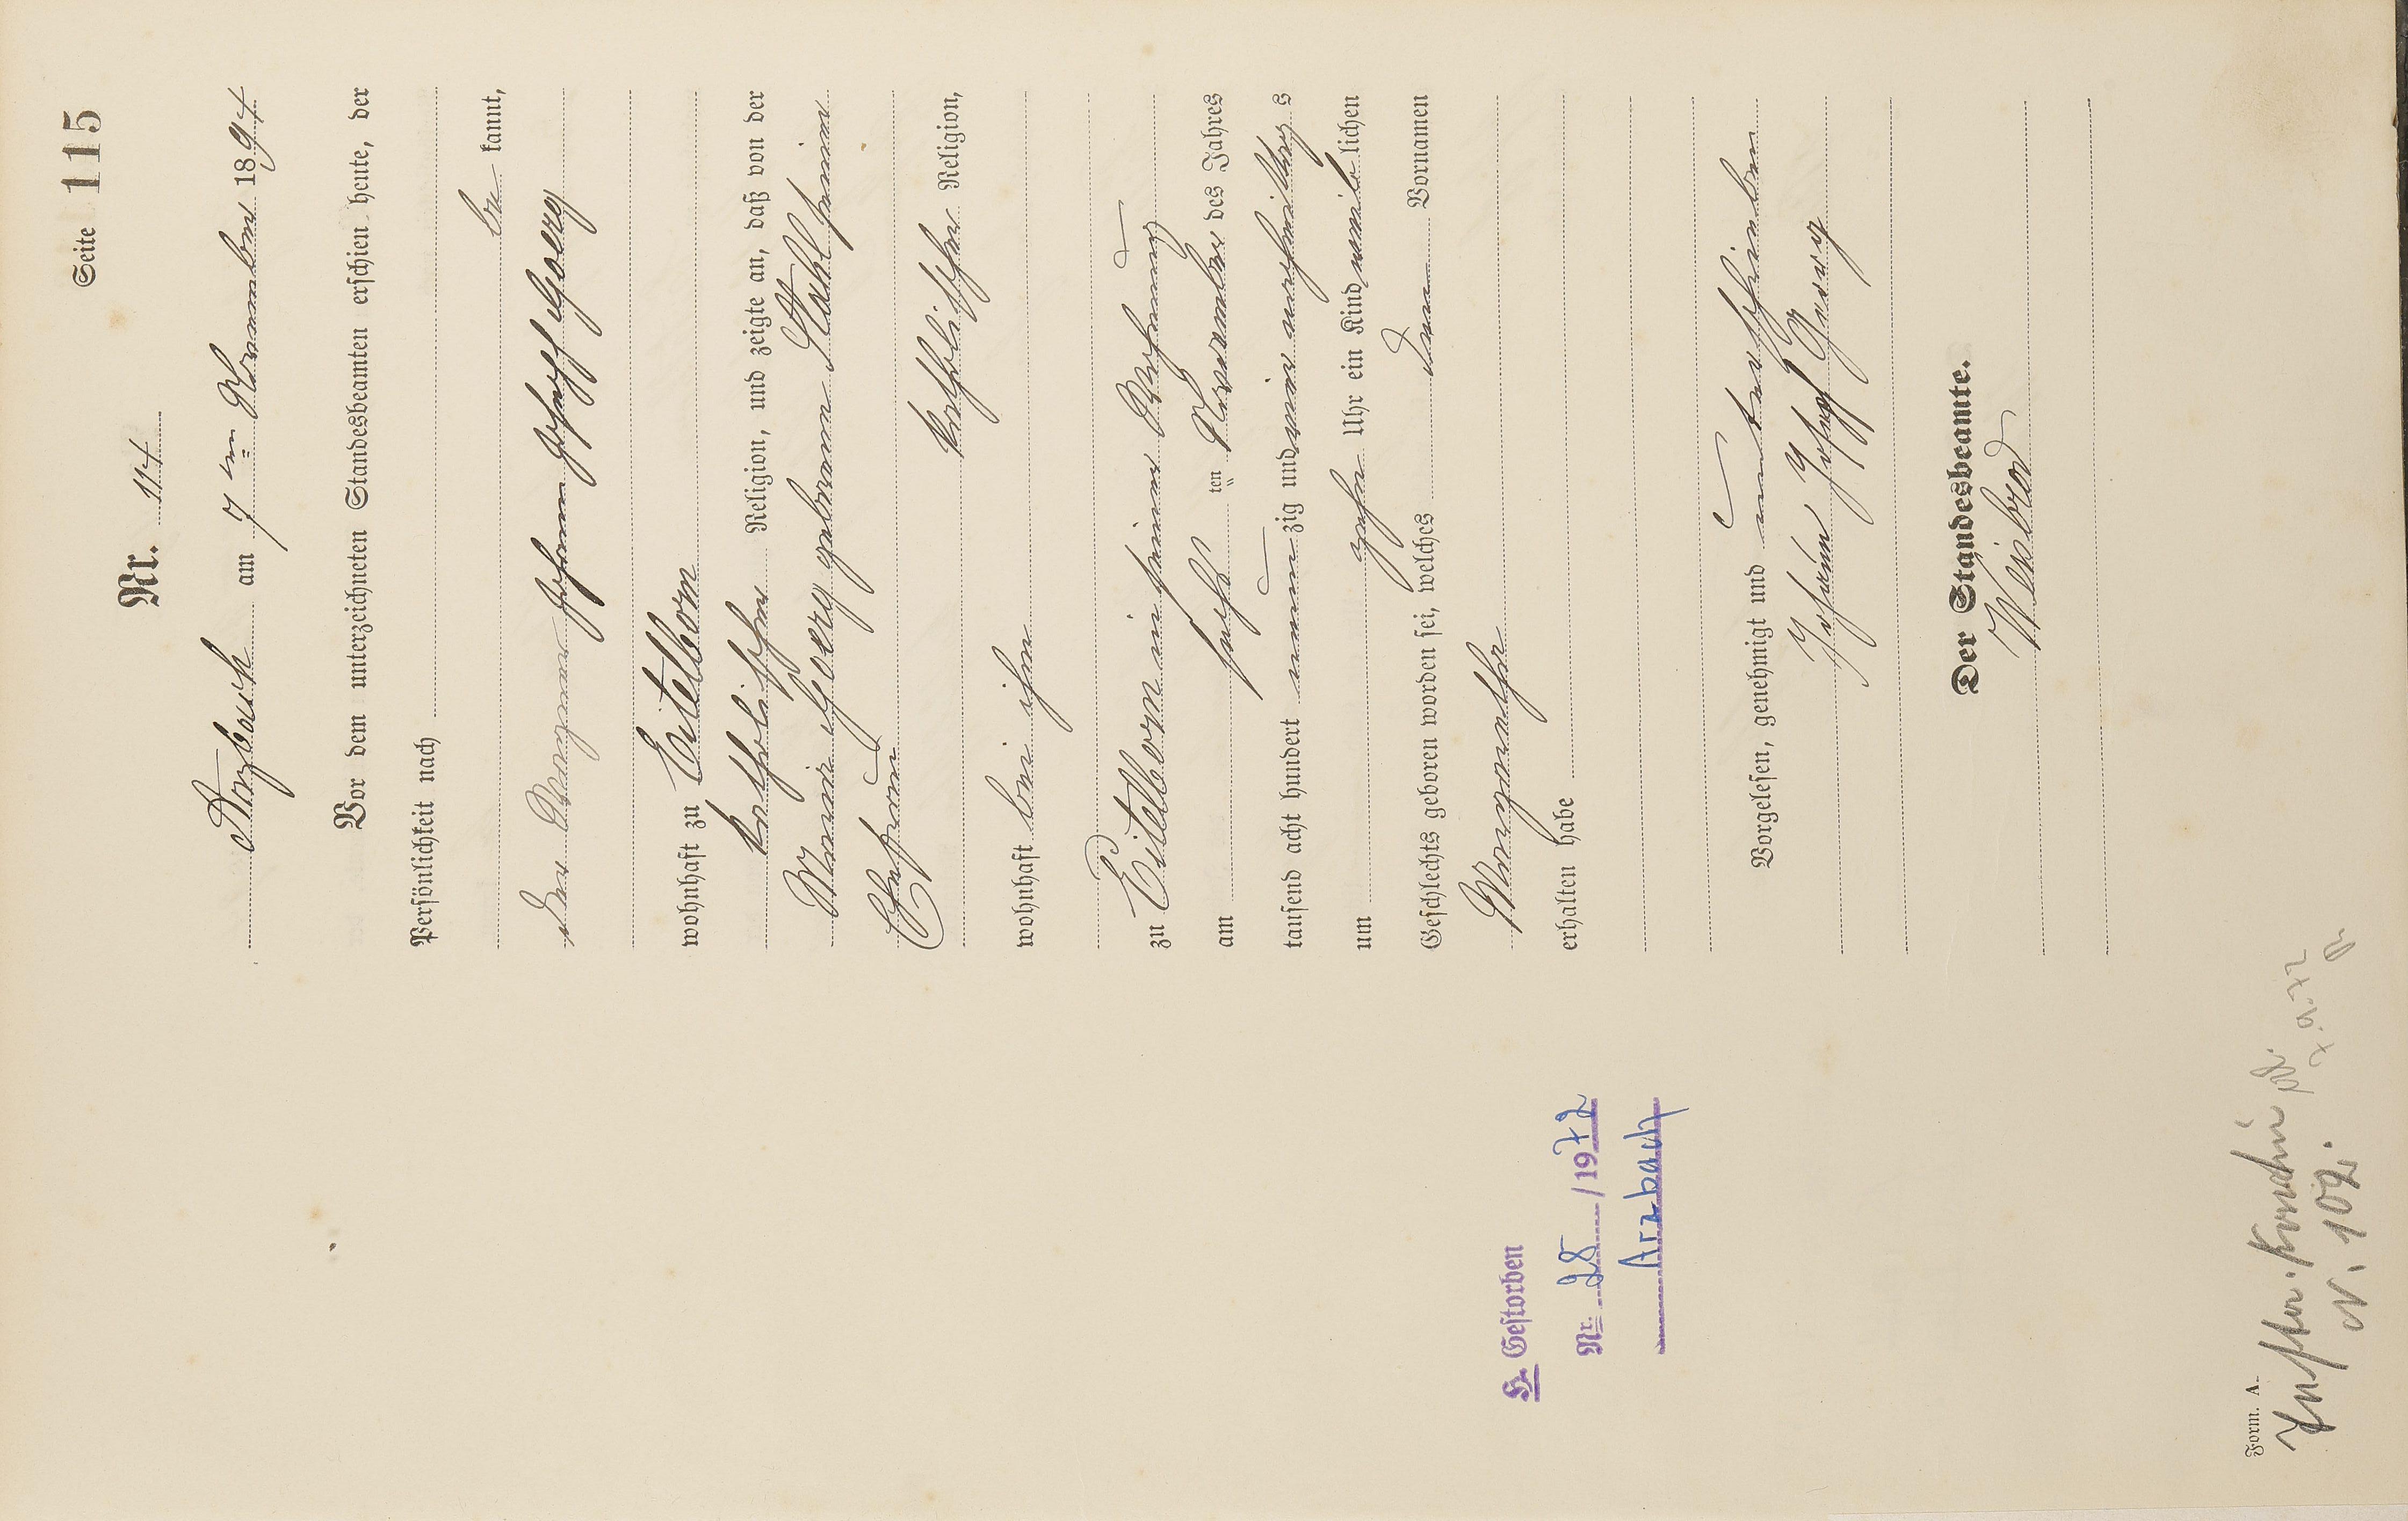 Seite 115
Nr. 114
Arzbach am 7ten November 1894
Vor dem unterzeichneten Standesbeamten erschien heute, der
Persönlichkeit nach
be kannt,
der Johann Joseph Goerg
wohnhaft zu Eitelborn
katholischer Religion, und zeigte an, daß von der
Maria Goerg geborenen Stahlheim
Ehefrau
katholischer Religion,
wohnhaft bei ihm
zu Eitelborn in seiner Wohnung
am sechs ten November des Jahres
tausend acht hundert neun zig und vier nachmittags
um zehn Uhr ein Kind weiblichen
Geschlechts geboren worden sei, welches den Vornamen
Margaretha
erhalten habe
Vorgelesen, genehmigt und unterschrieben
Johann Josef Georg
Der Standesbeamte.
Weisbrod
H. Gestorben
Nr. 28 /1972
Arzbach
Form. A.
N. 109.